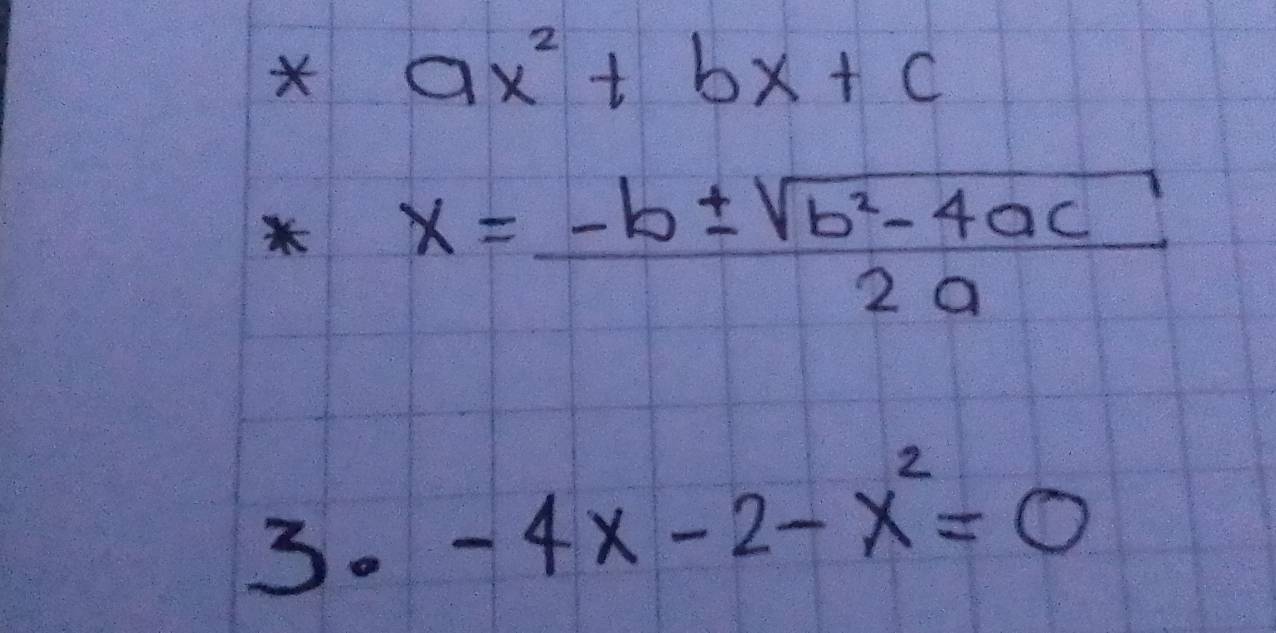 * ax² + bx + c
* x = -b ± √b² - 4ac
2a
3. -4x - 2 - x² = 0